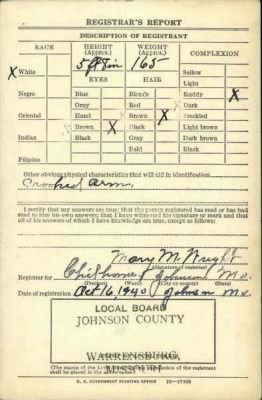 REGISTRAR'S REPORT
DESCRIPTION OF REGISTRANT
RACE HEIGHT (Approx.) WEIGHT (Approx.) COMPLEXION
X White 5 ft 8 in 165 Sallow
EYES HAIR Light
Negro Blue Blonde Ruddy X
Gray Red Dark
Oriental Hazel Brown X Freckled
Brown X Black Light brown
Indian Black Gray Dark brown
Bald Black
Filipino
Other obvious physical characteristics that will aid in identification
Crooked arm
I certify that my answers are true; that the person registered has read or has had
read to him his own answers; that I have witnessed his signature or mark and that
all of his answers of which I have knowledge are true, except as follows:
Mary M. Wright
(Signature of registrar)
Registrar for Johnson Mo.
Date of registration Oct 16, 1940 Johnson Mo.
LOCAL BOARD
JOHNSON COUNTY
WARRENSBURG,
MISSOURI
(The stamp of the Local Board of the registrant
shall be placed in the above space.)
U. S. GOVERNMENT PRINTING OFFICE 16-17105